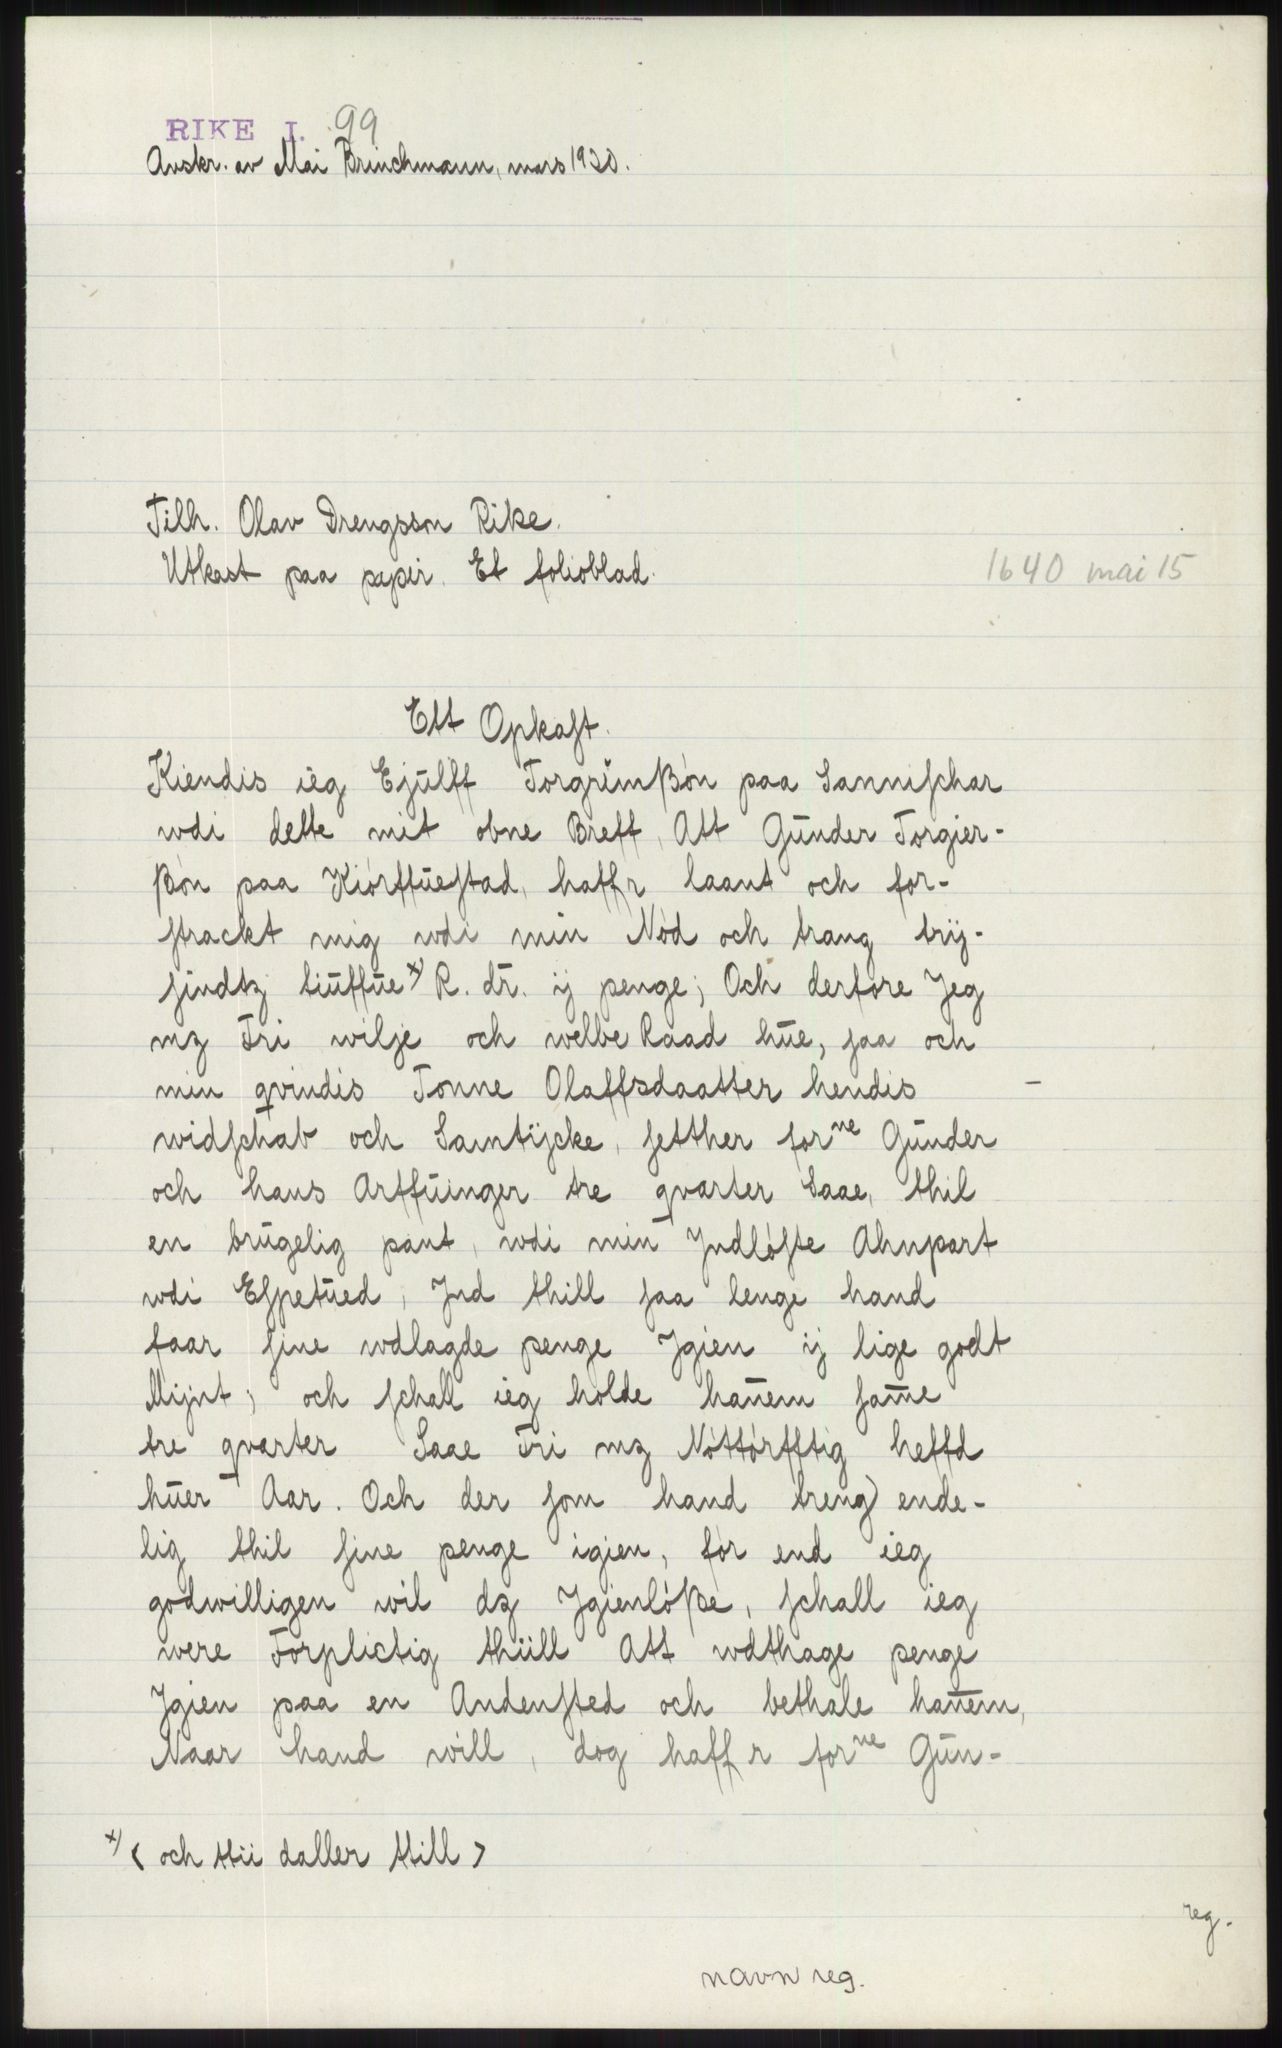 RIKE I. 99
Avskr. av Mai Brinchmann, mars 1930.
Tilh. Olav Drengsson Rike.
Utkast paa papir. Et folioblad.
1640 mai 15
Ett Opkaſt.
Kiendis ieg Ejŭlff Torgrimßón paa Sanniſchar
wdi dette mit obne Breff, Att Gŭnder Torgier-
ßón paa Kiórffŭeſtad, haffr laant och for-
ſtrackt mig wdi min Nód och trang trÿ-
ſindtʒ tiŭffŭe x) R. dr̄. ij penge; Och derfore Jeg
mʒ Fri wilje och welbe Raad hŭe, ſaa och
min qvindis Tonne Olaffsdaatter hendis
widſchab och Samtÿcke, ſetther forne Gŭnder
och hans Arffŭinger tre qvarter Saae, thil
en brŭgelig pant, wdi min Jndlóſte Ahnpart
wdi Eſpetŭed, Jnd thill ſaa lenge hand
faar ſine wdlagde penge Jgien ij lige godt
Mÿnt; och ſchall ieg holde han̄em ſam̄e
tre qvarter Saae Fri mʒ Nóttórfftig heffd
hŭer Aar. Och der ſom hand treng) ende-
lig thil ſine penge igien, fór end ieg
godwilligen wil dʒ Jgienlóße, ſchall ieg
were Forplictig thiill Att wdthage penge
Jgien paa en Andenſted och bethale han̄em,
Naar hand will, dog haffr forne Gŭn-
x) < och ttii daller ttill >
reg.
navn reg.